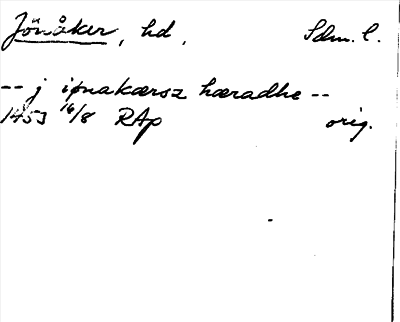 Jönåker, hd, Sdm. l.
-- j iønakærsz hæradhe --
1453 16/8 RAp orig.